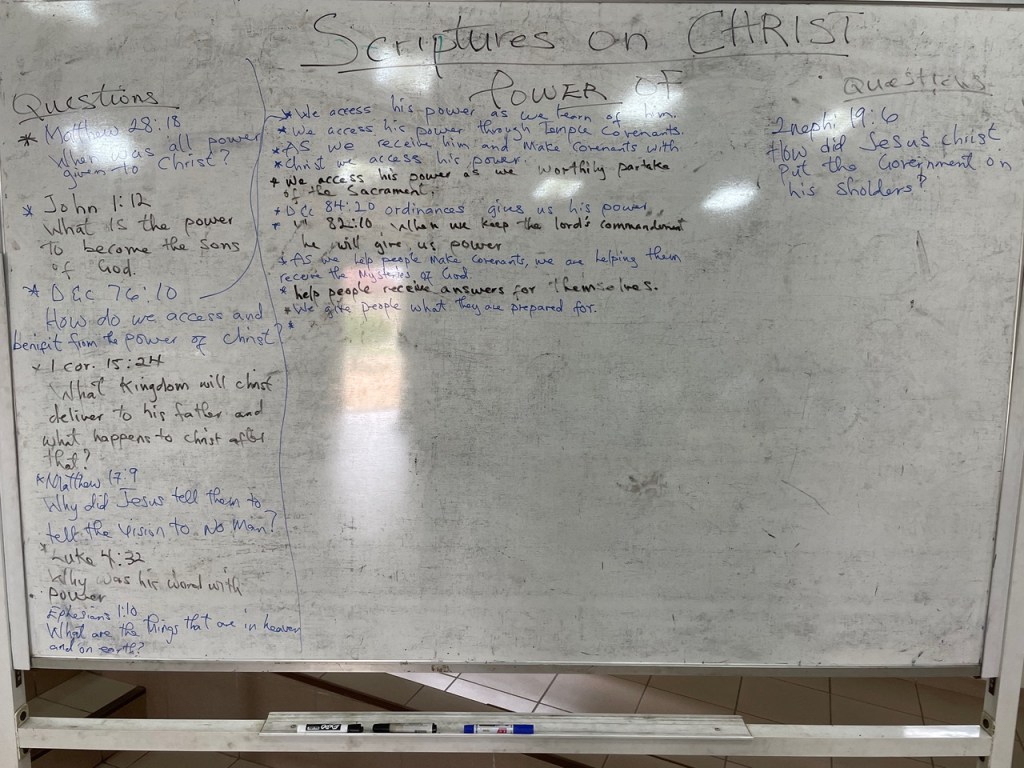 Scriptures on CHRIST
POWER OF
Questions
* Matthew 28:18
When was all power
given to Christ?
* John 1:12
What Is the power
To become the Sons
of God.
* D&C 76:10
How do we access and
benifit from the power of Christ?
* 1 cor. 15:24
What Kingdom will christ
deliver to his father and
what happens to christ after
that?
* Matthew 17:9
Why did Jesus tell them to
tell the Vision to No Man?
* Luke 4:32
Why was his word with
Power
Ephesians 1:10
What are the things that are in heaven
and on earth?
* We access his power as we learn of him.
* We access his power through Temple Covenants.
* AS we receive him and Make Covenants with
* Christ we access his power.
* We access his power as we worthily partake
of the Sacrament.
* D&C 84:20 ordinances gives us his power
* " 82:10 When we keep the lord's commandment
he will give us power
* AS we help people Make Covenants, we are helping them
receive the Mysteries of God.
* help people receive answers for themselves.
* We give people what they are prepared for.
*
Questions
2nephi 19:6
How did Jesus christ
put the Government on
his Sholders?